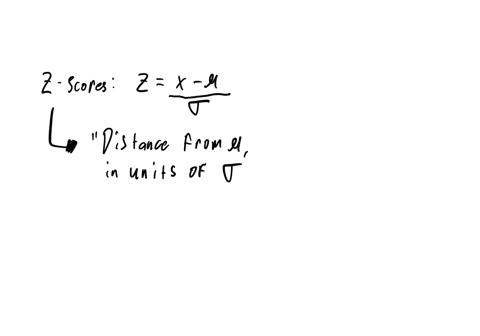 Z-Scores: Z = (x - μ) / σ
"Distance from μ,
in units of σ